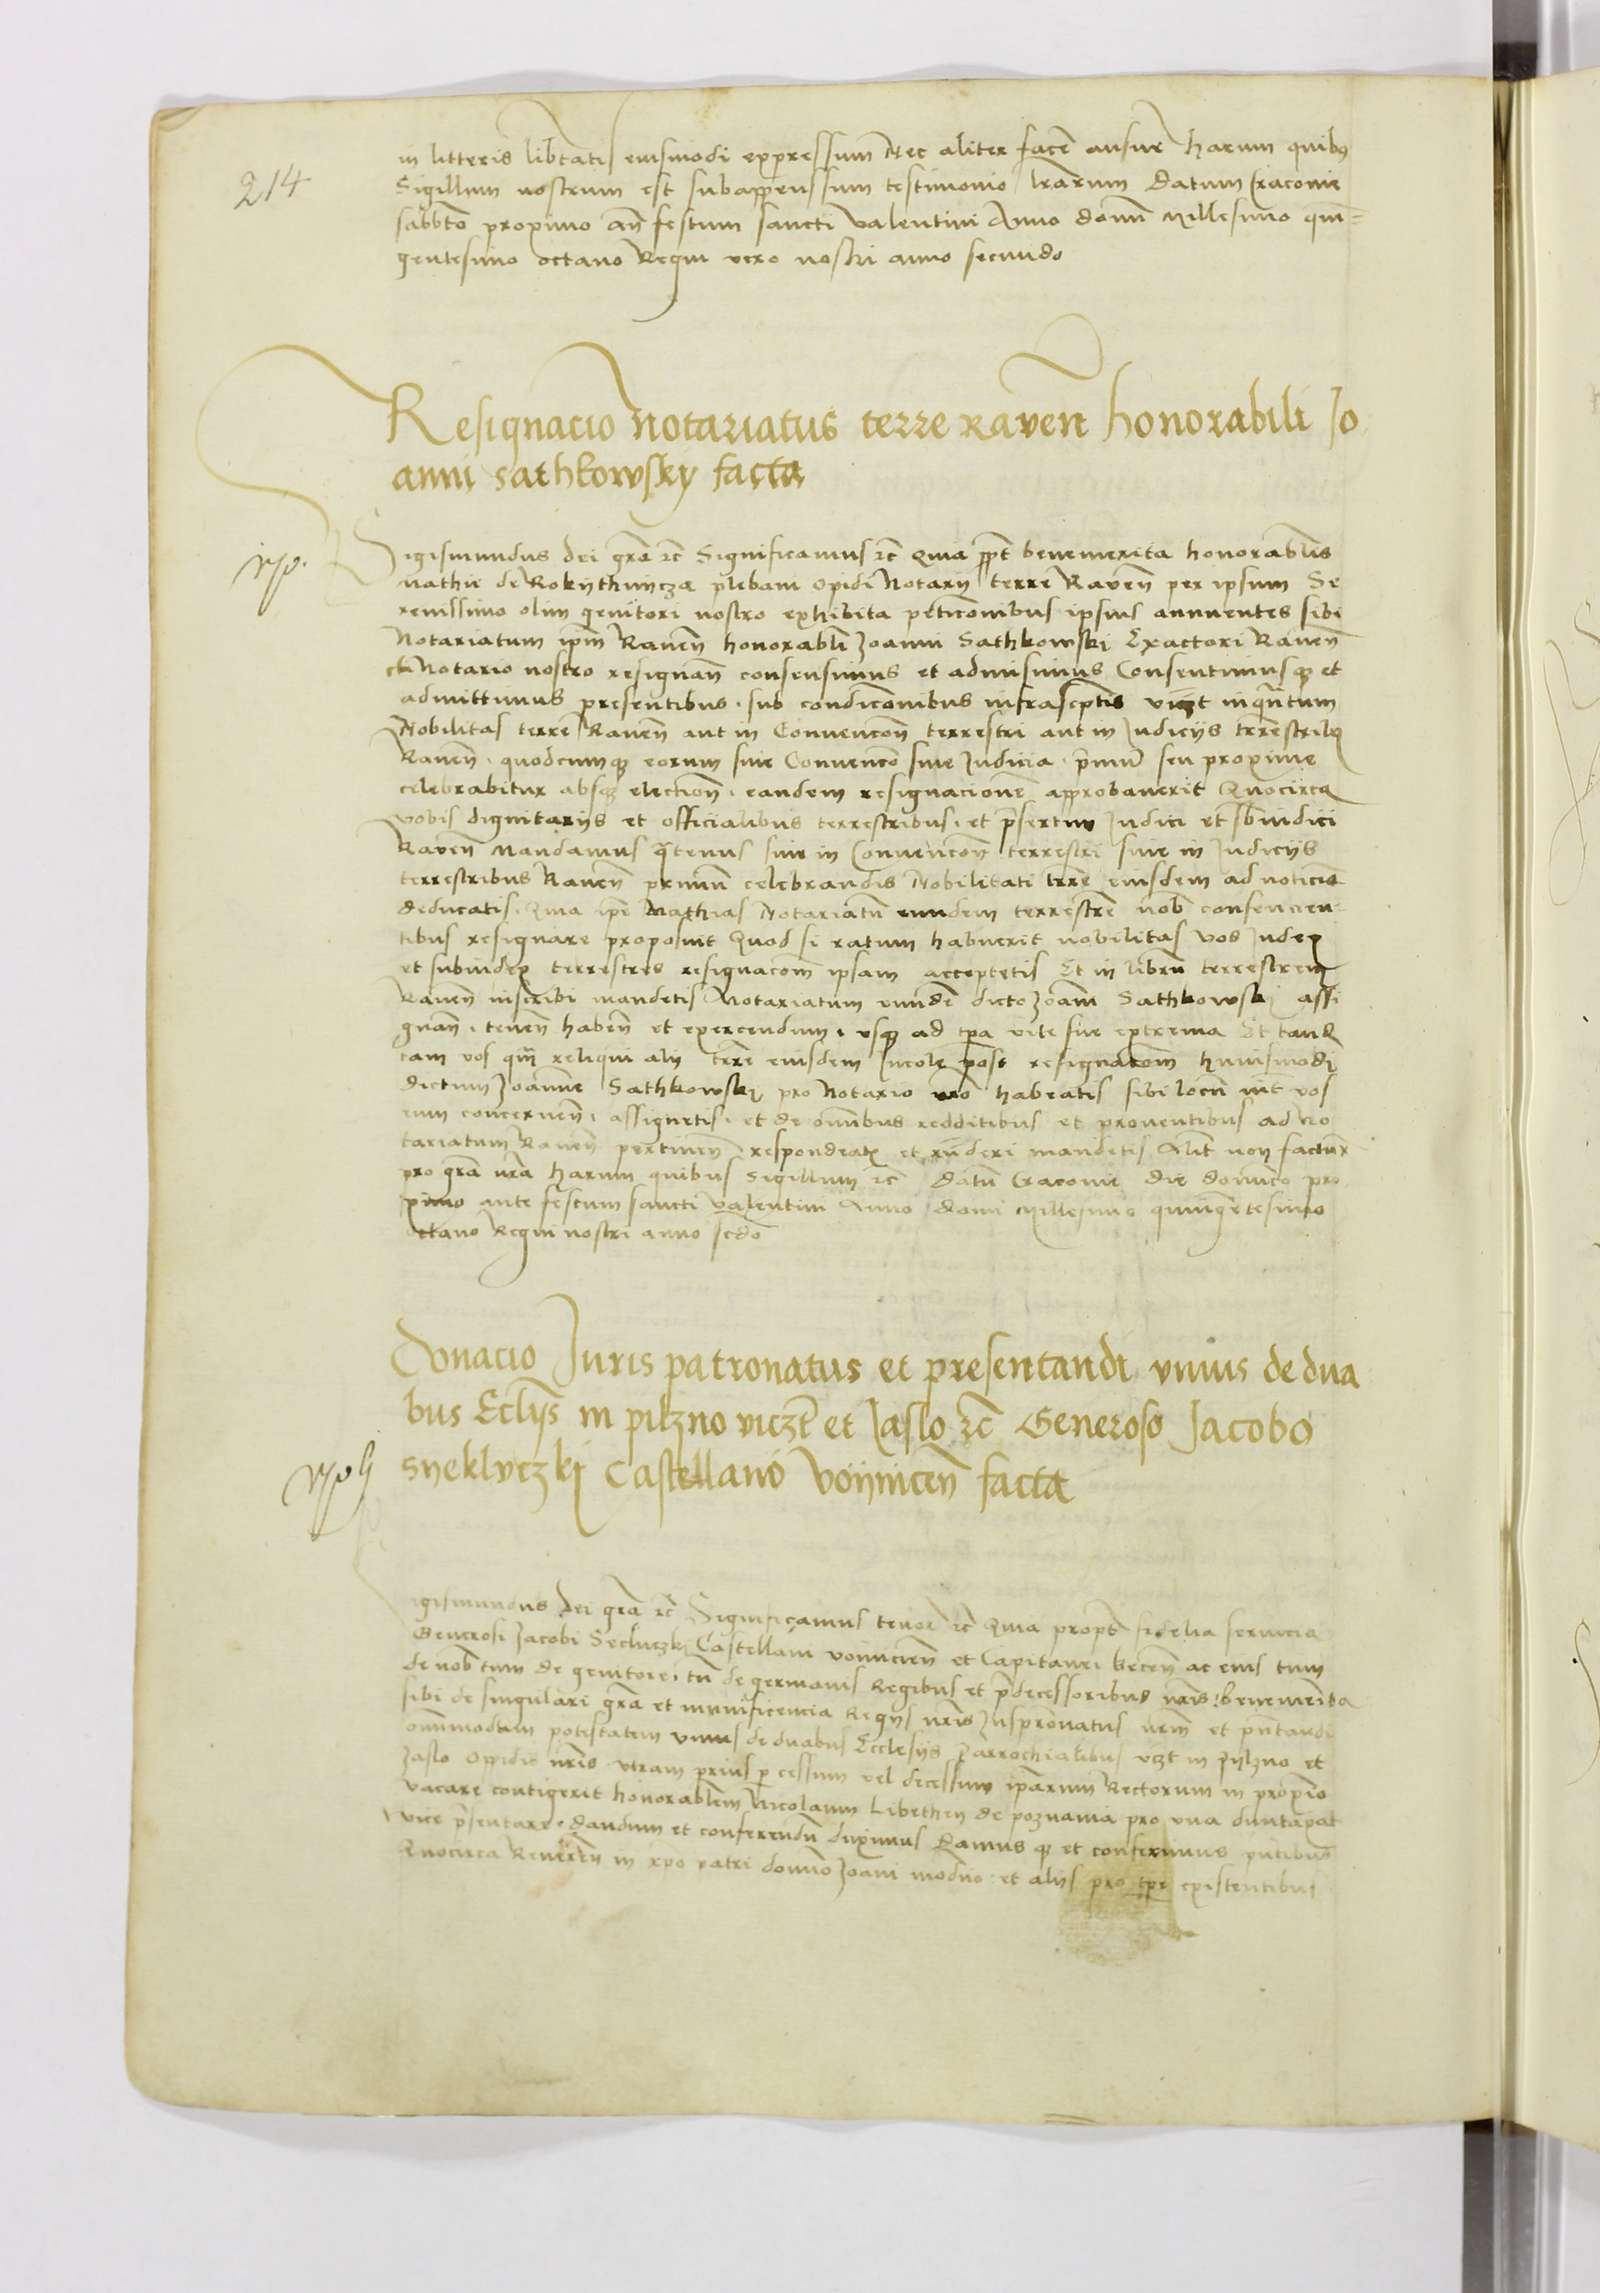 214
in litteris lib̄tatis eiusmodi expressum Nec aliter facē ausur̄ harum quibꝰ
Sigillum nostrum est subappenssum testimonio lrārum Datum Cracovie
sabb̄to proximo an̄ festum sancti Valentini Anno domī Millesimo quin=
gentesimo octavo Regni vero nostri anno secundo
Resignacio Notariatus terre Raven̄ honorabili Jo
anni Sathkowsky facta
Sigismundus dei gr̄a ꝛc̄ Significamus ꝛc̄ Quia ppt̄ benemerita honorabilis
Mathie de Rokythnicza plebani opidi Notarij terre Raven̄ per ipsum Se
renissimo olim genitori nostro exhibita peticōnibus ipsius annuentes sibi
Notariatum ip̄m Raven̄ honorabl̄i Joanni Sathkowski Exactori Raven̄
et Notario nostro resignan̄ consensimus et admisimus Consentimusqꝫ et
admittimus presentibus . sub condicōnibus infrasc̄ptis vicꝫt inqn̄tum
Nobilitas terre Raven̄ aut in Convencōn̄ terrestri aut in Judicijs tr̄restribꝰ
Raven̄ . quodcumqꝫ eorum sive Convencō sive Judicia . p̄mit̄ seu proxime
celebrabitur absqꝫ election̄ . eandem resignacionē approbaverit Quocirca
vobis dignitarijs et officialibus terrestribus . et p̄sertim Judici et Sbiudici
Raven̄ Mandamus q̄tenus sive in Convencōn̄ terrestri sive in Judicijs
terrestribus Raven̄ primū celebrandis Nobilitati terre eiusdem ad noticiā
deducatis . Quia ip̄e Mathias Notariatū eundem terrestrē nob̄ consencien
tibus resignare proposuit Quod si ratum habuerit nobilitas vos Judex
et subiudex terrestres resignacōm ipsam acceptetis Et in librū terrestrem
Raven̄ inscribi mandetis Notariatum eundē dicto Joan̄i Sathkowski assi
gnan̄ . tenen̄ haben̄ et exercendum . usqꝫ ad tp̄a vite sue extrema Et tandē
tam vos qm̄ reliqui alij terre eiusdem Incole post resignacōm huiusmodi
dictum Joannē Sathkowski pro Notario vr̄o habeatis sibi locū int̄ vos
eum concernen̄ . assignetis . et de om̄ibus redditibus et proventibus ad No
tariatum Raven̄ pertinen̄ respondeatis et rn̄deri mandetis Alit̄ non factur̄
pro gr̄a nr̄a Harum quibus Sigillum ꝛc̄ Datū Cracovie die domīco pro
ximo ante festum sancti Valentini Anno domī Millesimo quingētesimo
octavo Regni nostri anno scdō
Donacio Juris patronatus et presentandi unius de dua
bus Eccl̄ijs in pilzno viczt̄ et Jaslo ꝛc̄ Generoso Jacobo
Syeklyczki Castellano Voijnicen̄ facta
igismundus dei gr̄a ꝛc̄ Significamus tenor̄ ꝛc̄ Quia propt̄ fidelia servicia
Generosi Jacobi Secluczki Castellani voinicien̄ et Capitanei becen̄ ac eius tum
de nob̄ tum de genitore . tū de germanis Regibus et p̄decessoribus nr̄is . benemerita
sibi de singulari gr̄a et munificencia Regijs nr̄is Juspr̄onatus nr̄m et pn̄tandi
omnimodam potestatem unius de duabus Ecclesijs Parrochialibus vczt in pilzno et
Jaslo Opidis nr̄is utram prius p cessum vel decessum ip̄arum Rectorum in proxīo
vacare contigerit honorabilem Nicolaum Libethen de poznania pro una duntaxat
vice p̄sentare . dandum et conferendū duximus Damusqꝫ et conferimus pn̄tibus
Quocirca Reveren̄ in xpo patri domino Joan̄i moderno et alijs pro tp̄re existentibus